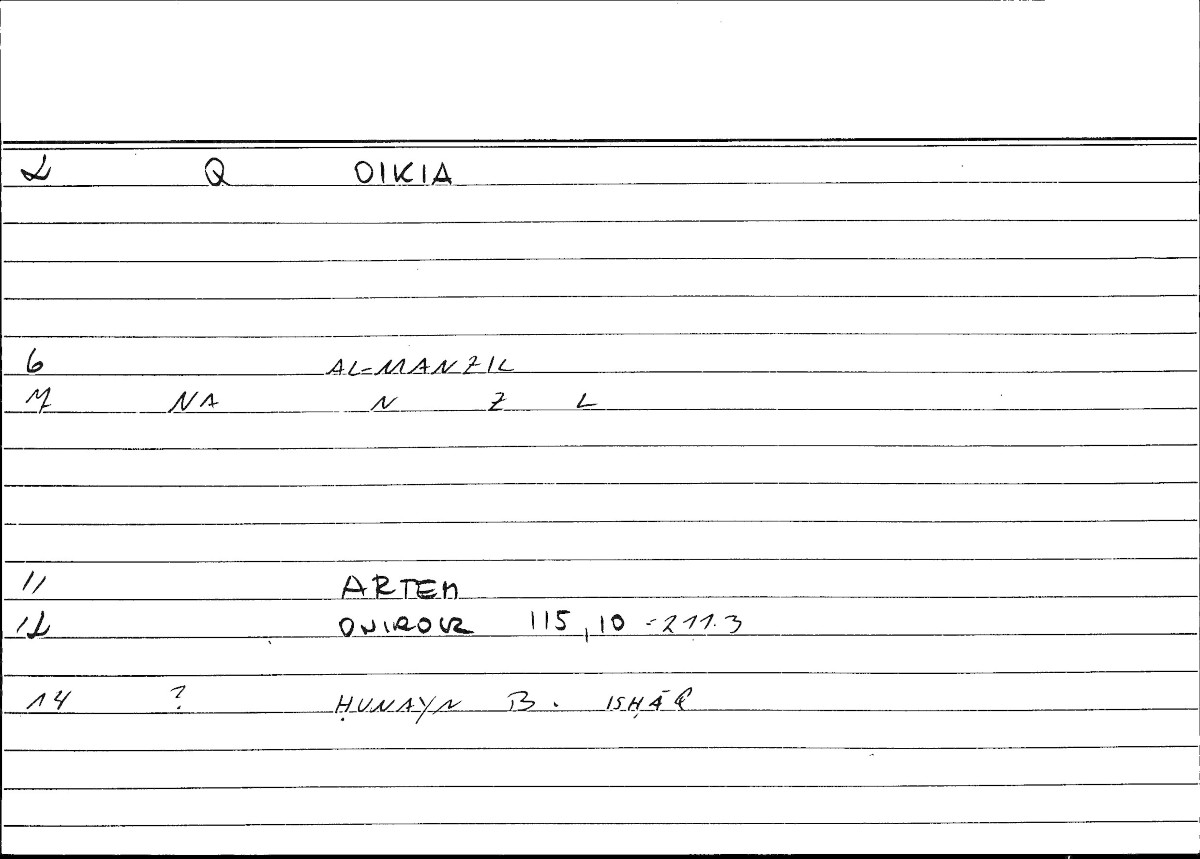 2 Q OIKIA
6 AL-MANZIL
7 NA N Z L
11 ARTEM
12 ONIROCR 115,10 = 211.3
14 ? ḤUNAYN B. ISḤĀQ